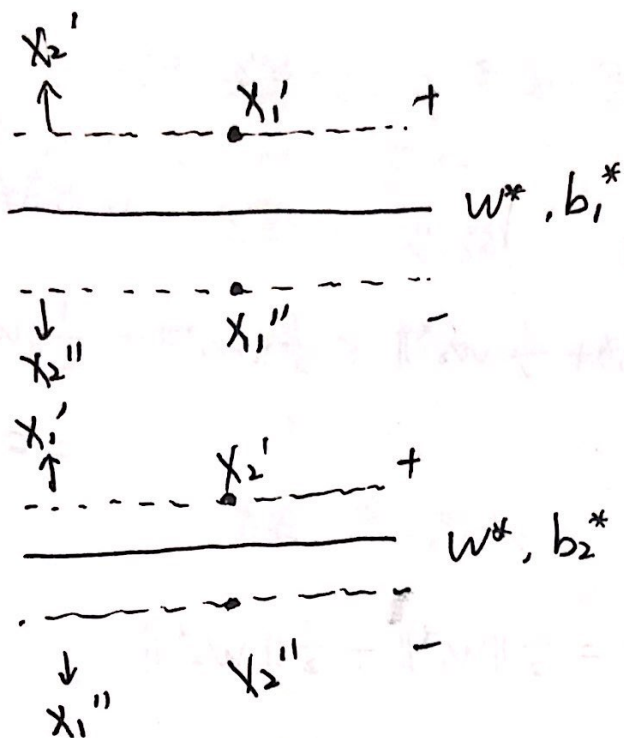 x₂'
x₁' +
w*, b₁*
x₁'' -
x₂''
x₁'
x₂' +
w*, b₂*
x₂'' -
x₁''